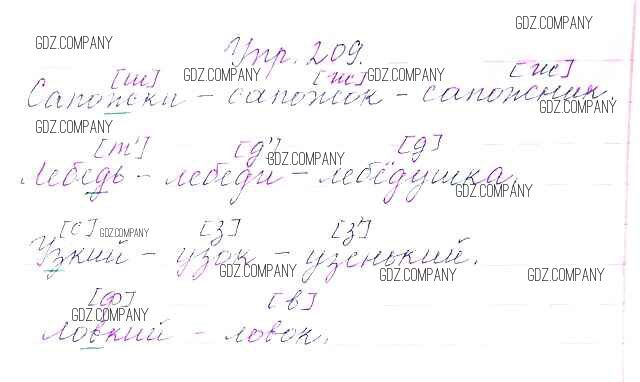 GDZ.COMPANY
Упр. 209.
GDZ.COMPANY
[ш] GDZ.COMPANY [ж] GDZ.COMPANY [ж]
Сапожки - сапожок - сапожник.
GDZ.COMPANY
GDZ.COMPANY
[т'] [д'] [д]
GDZ.COMPANY
Лебедь - лебеди - лебёдушка.
GDZ.COMPANY
[с] GDZ.COMPANY [з] [з']
Узкий - узок - узенький.
GDZ.COMPANY GDZ.COMPANY GDZ.COMPANY
[ф] [в]
GDZ.COMPANY
Ловкий - ловок.